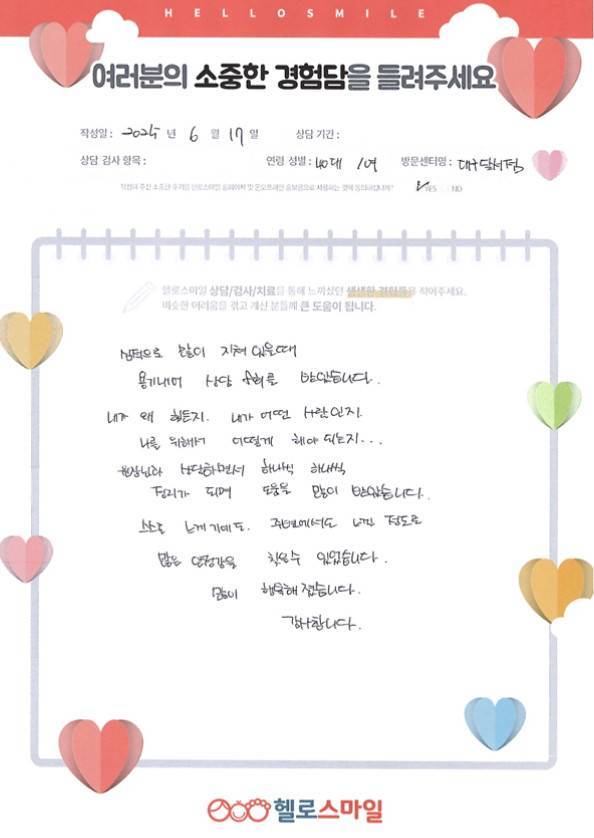 HELLOSMILE
여러분의 소중한 경험담을 들려주세요
작성일 : 2025 년 6 월 17 일 상담 기간 :
상담 검사 항목 : 연령 성별 : 40대 / 여 방문센터명 : 대구달서점
작성해 주신 소중한 후기를 헬로스마일 홈페이지 및 온오프라인 홍보용으로 사용하는 것에 동의하십니까? ✓YES NO
헬로스마일 상담/검사/치료를 통해 느끼셨던 생생한 경험들을 적어주세요.
비슷한 어려움을 겪고 계신 분들께 큰 도움이 됩니다.
심적으로 많이 지쳐 있을때
용기내어 상담 치료를 받았습니다.
내가 왜 힘든지. 내가 어떤 사람인지.
나를 위해서 어떻게 해야 되는지...
원장님과 상담하면서 하나씩 하나씩
정리가 되며 도움을 많이 받았습니다.
스스로 느끼기에도. 주변에서도 느낄 정도로
많은 안정감을 찾을수 있었습니다.
많이 행복해 졌습니다.
감사합니다.
헬로스마일